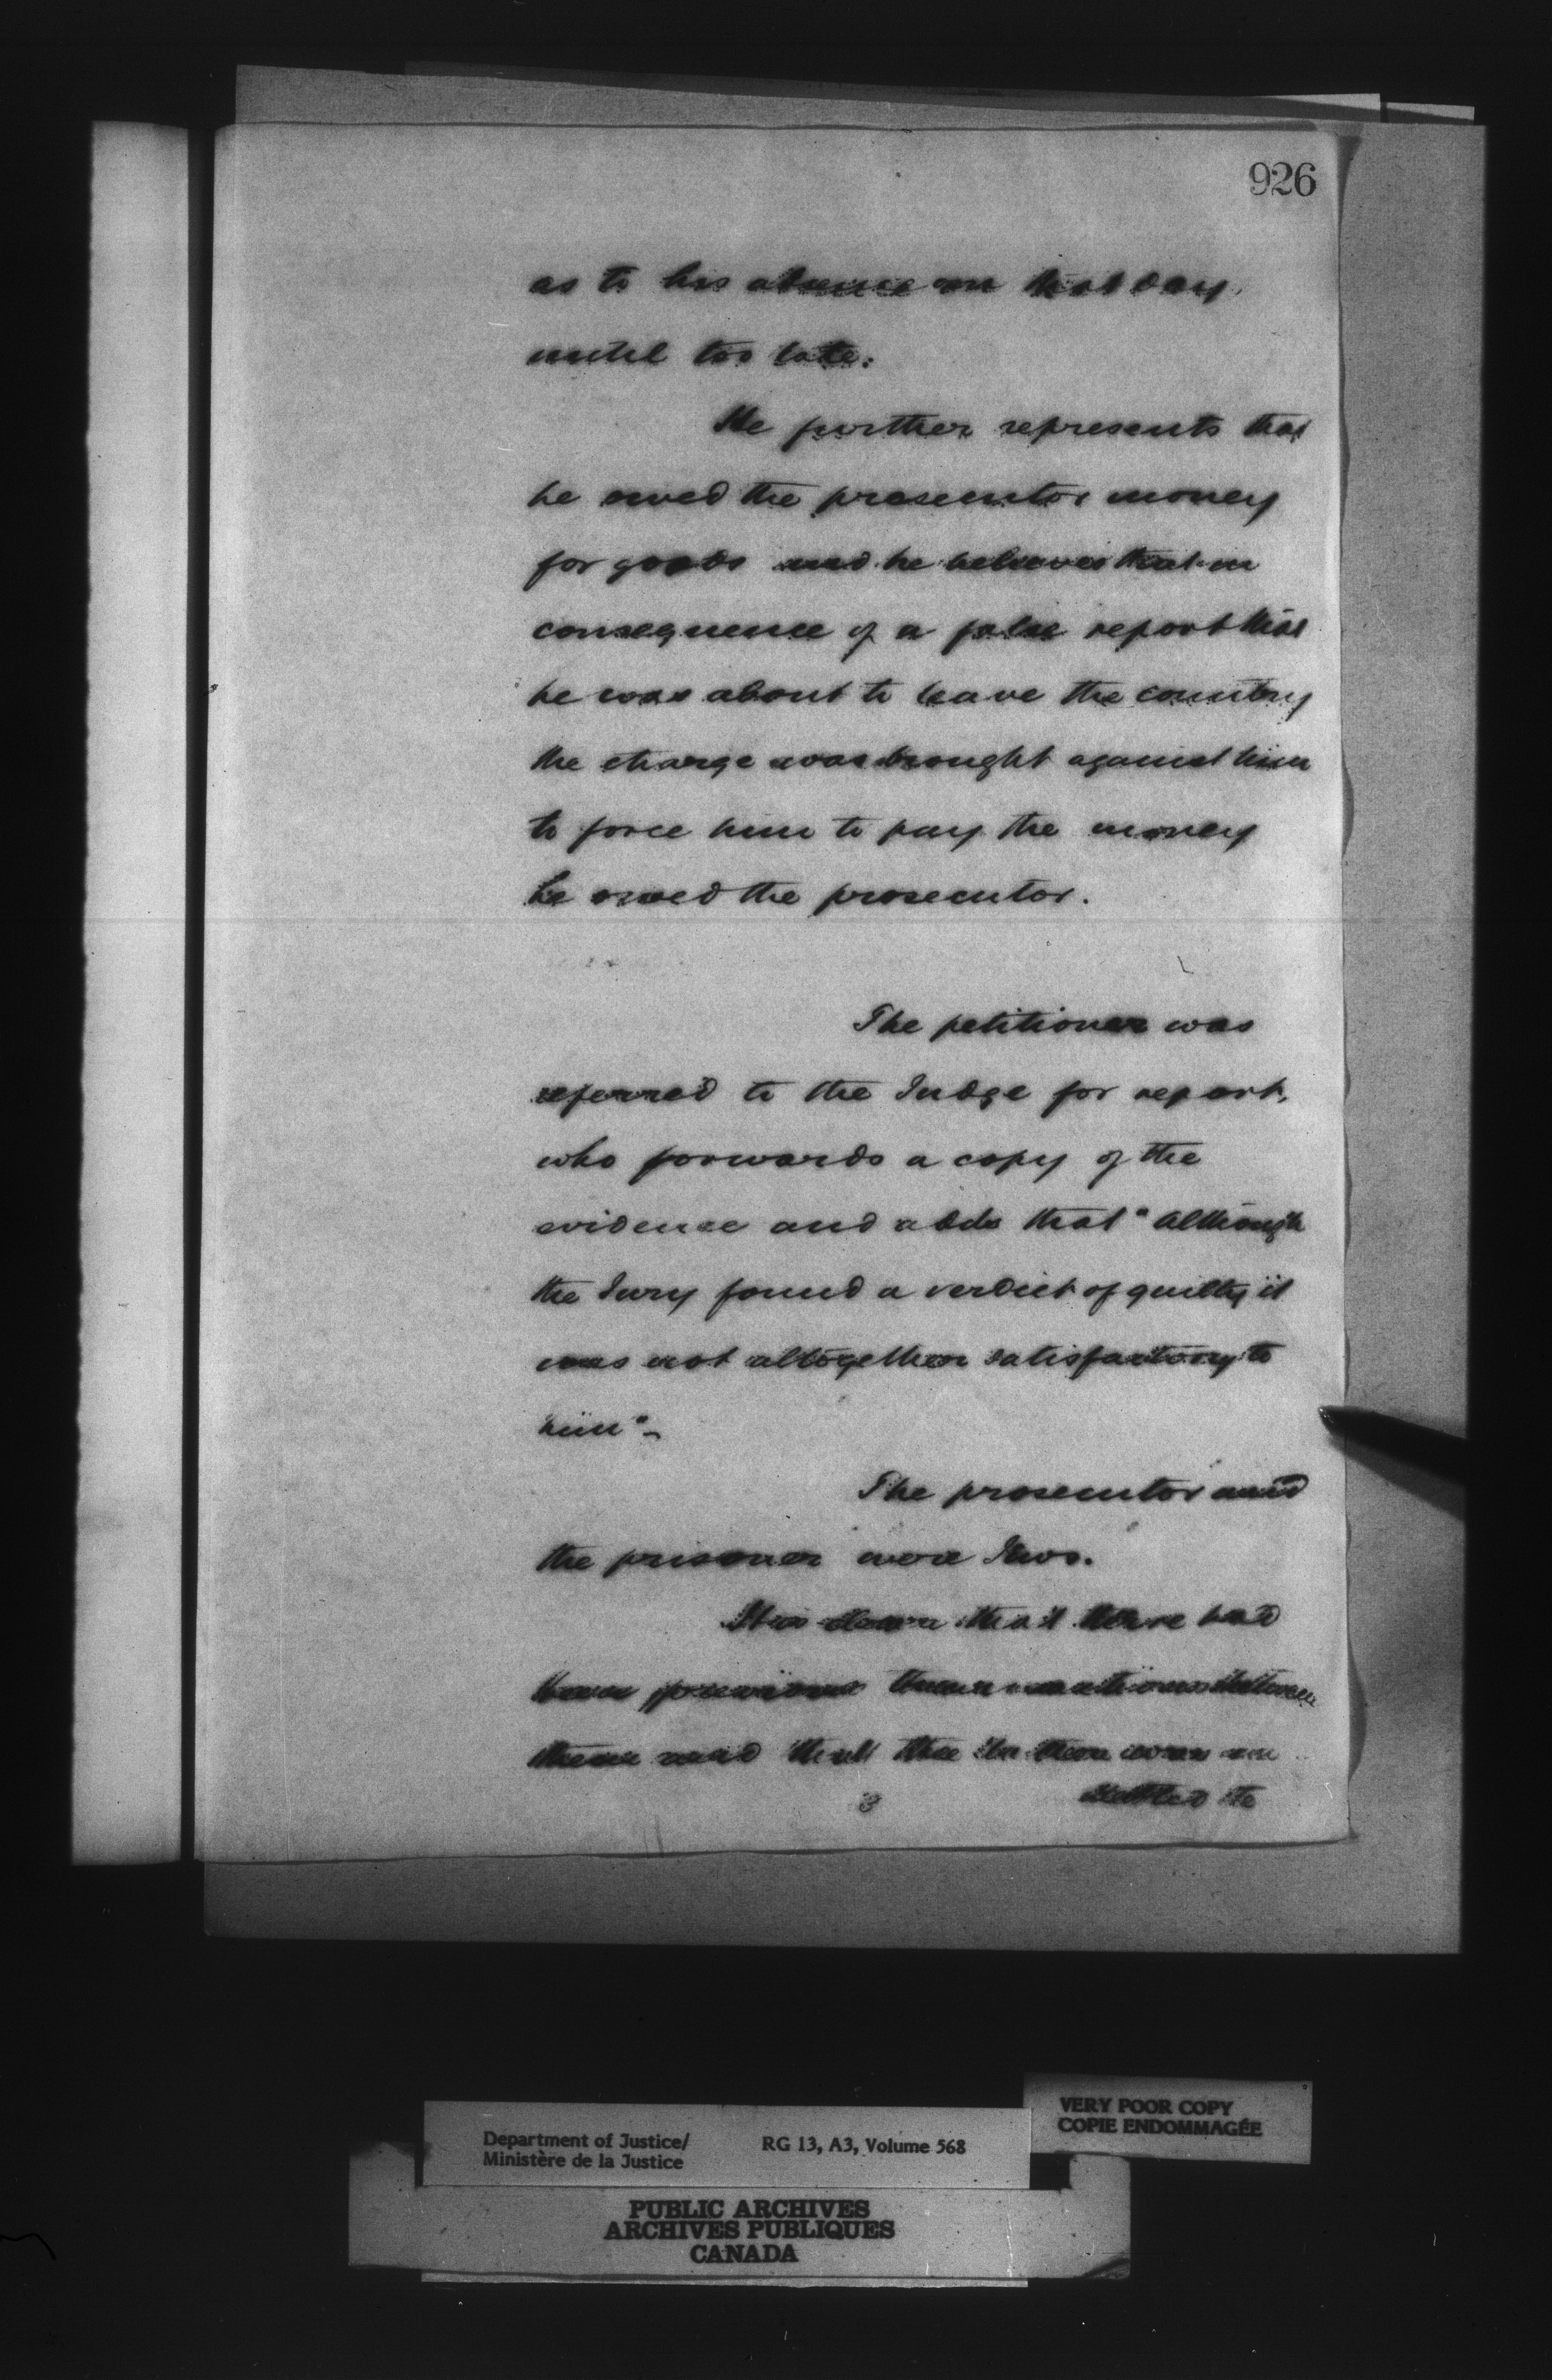 926
as to his absence on that day
until too late.
He further represents that
he owed the prosecutor money
for goods and he believes that in
consequence of a false report that
he was about to leave the country
the charge was brought against him
to force him to pay the money
he owed the prosecutor.
The petitioner was
referred to the Judge for report,
who forwards a copy of the
evidence and adds that "Although
the Jury found a verdict of guilty it
was not altogether satisfactory to
him" –
The prosecutor and
the prisoner were Jews.
It is clear that there had
been previous transactions between
them and that the
settled
Department of Justice/
Ministère de la Justice
RG 13, A3, Volume 568
VERY POOR COPY
COPIE ENDOMMAGÉE
PUBLIC ARCHIVES
ARCHIVES PUBLIQUES
CANADA